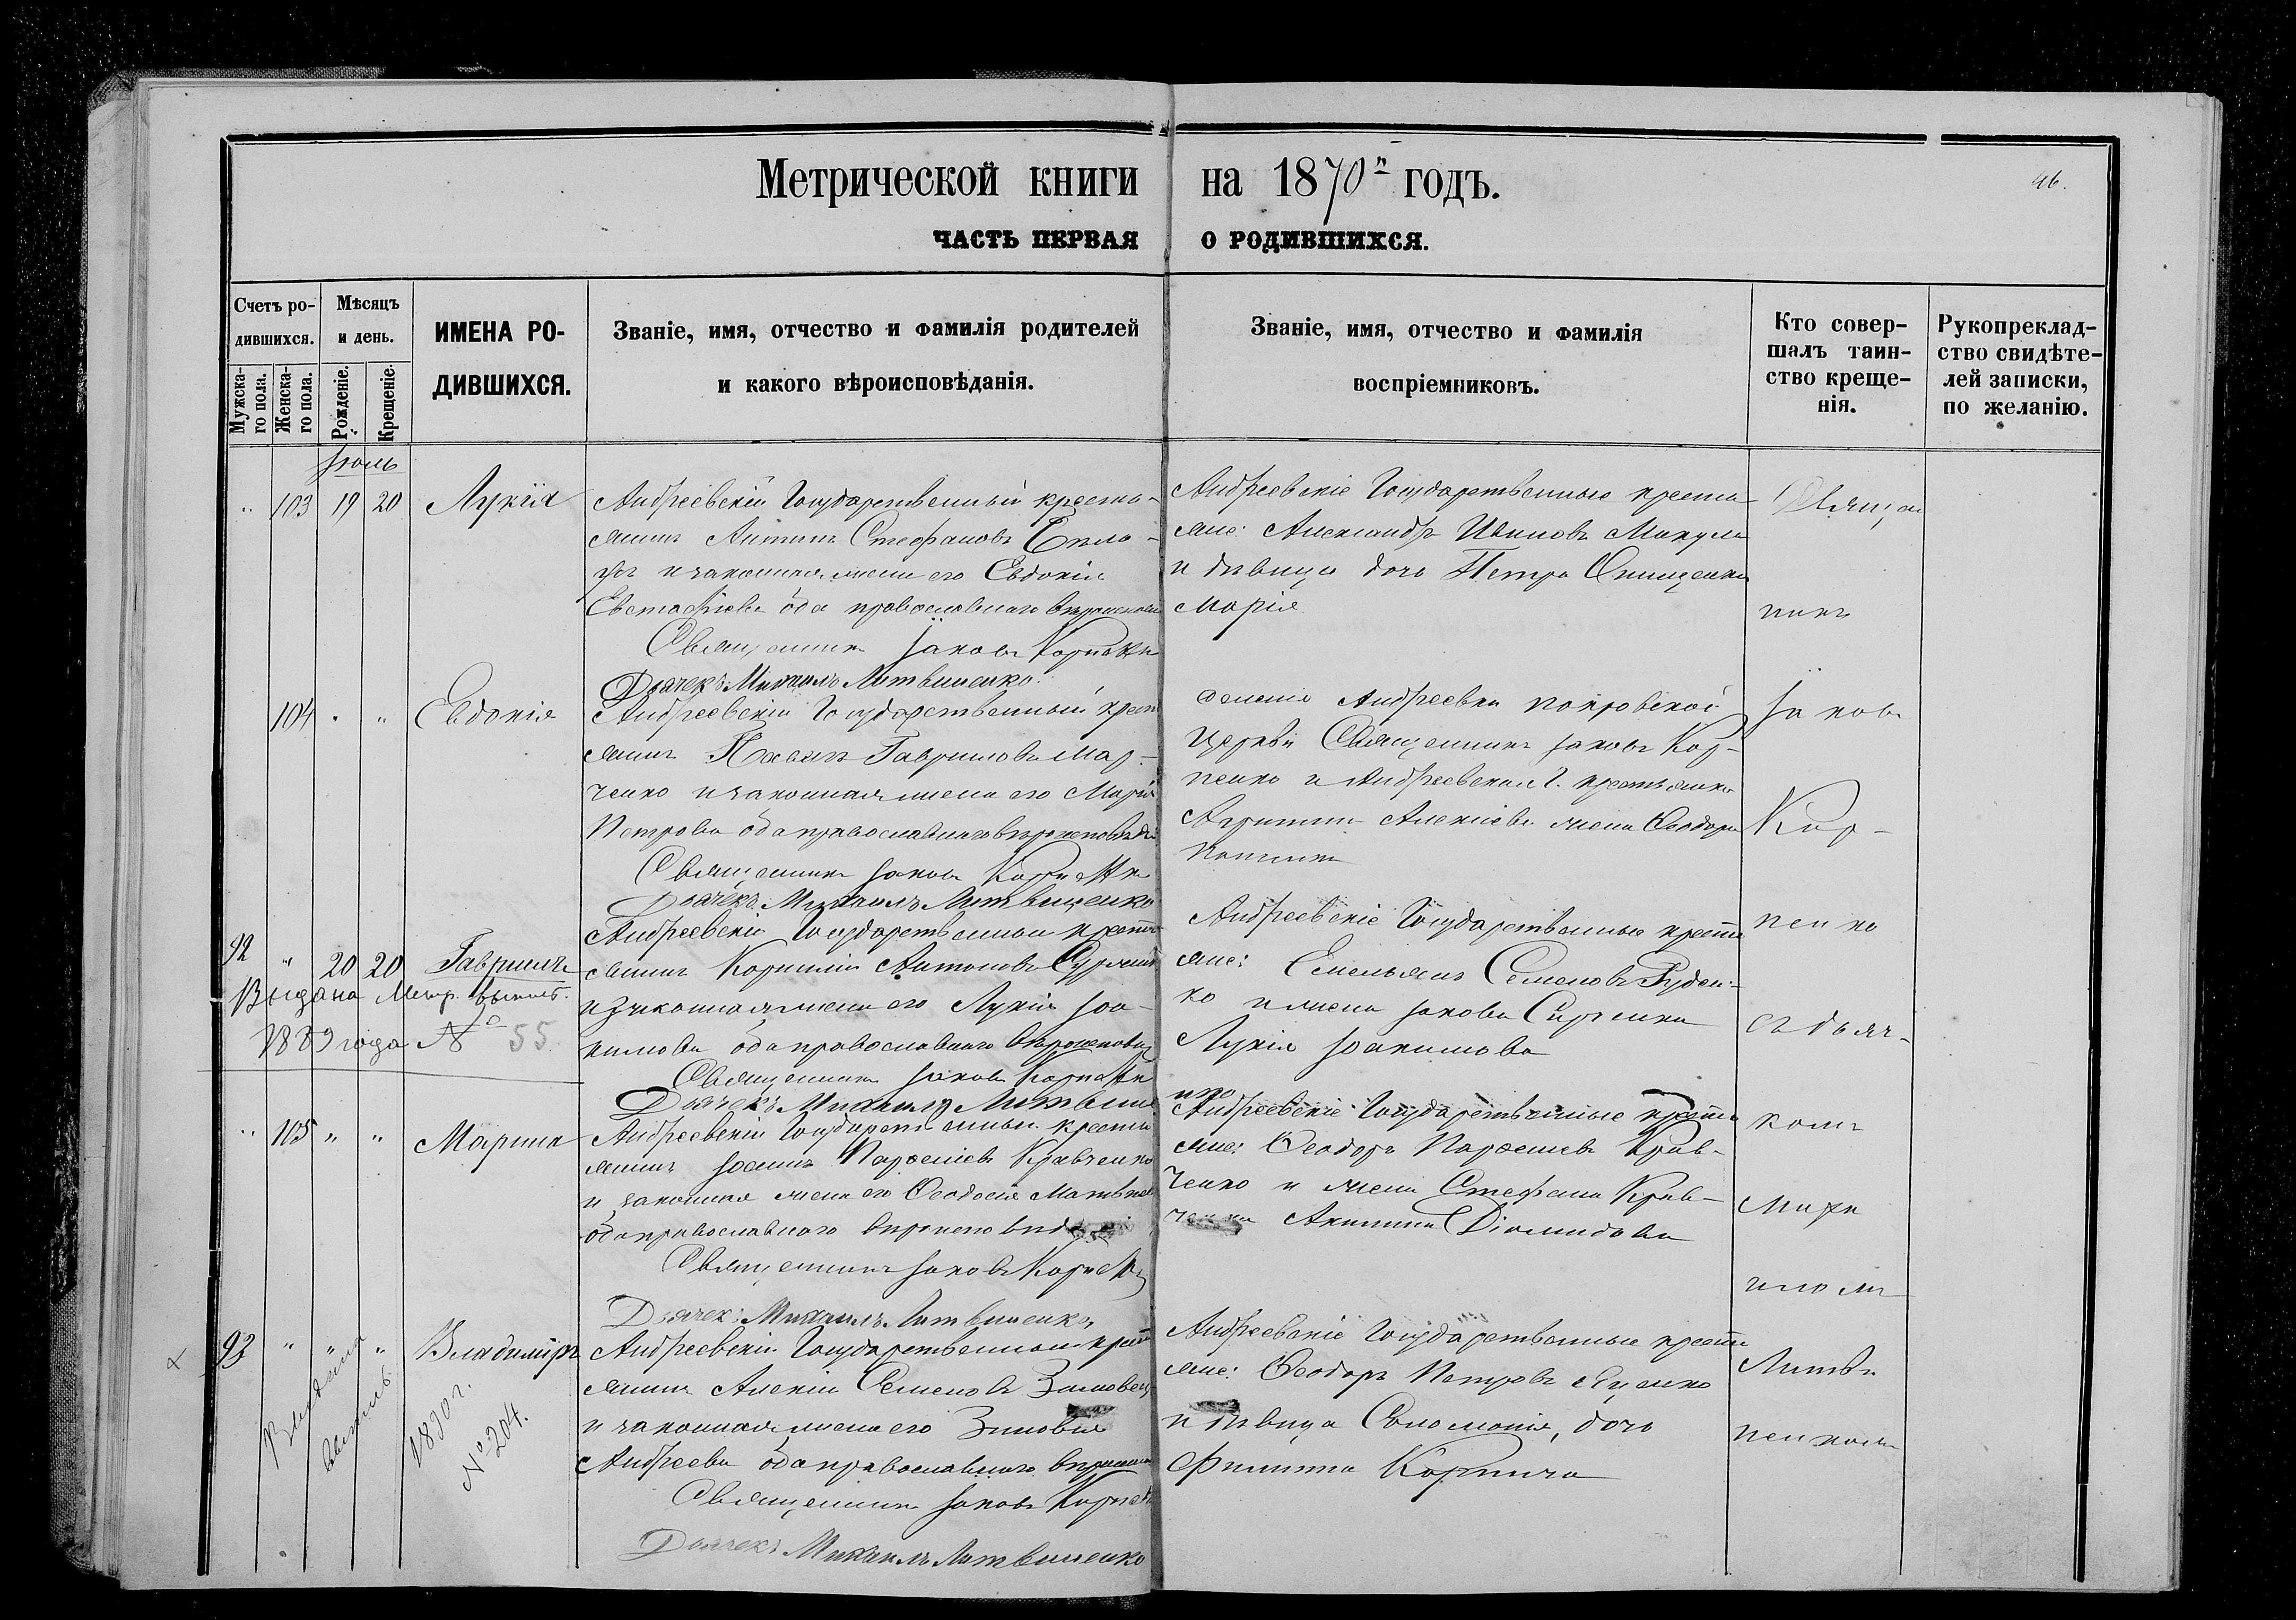 Метрической книги на 1870й годъ.
46.
ЧАСТЬ ПЕРВАЯ О РОДИВШИХСЯ.
Счетъ ро-
дившихся.
Мужска-
го пола.
Женска-
го пола.
Мѣсяцъ
и день.
Рожденіе.
Крещеніе.
ИМЕНА РО-
ДИВШИХСЯ.
Званіе, имя, отчество и фамилія родителей
и какого вѣроисповѣданія.
Званіе, имя, отчество и фамилія
воспріемниковъ.
Кто совер-
шалъ таин-
ство креще-
нія.
Рукоприклад-
ство свидѣте-
лей записки,
по желанію.
Іюль
" 103 19 20 Лукія
Андреевскій Государственный кресть-
янинъ Антипъ Стефановъ
и законная жена его Евдокія
Евстафіева оба православнаго
Священникъ Іаковъ
Дьячекъ Михаилъ Литвиненко.
Андреевскіе Государственные крестья
яне: Александръ Ивановъ Микула
и дѣвица дочь Петра Онищенка
Марія
104 " " Евдокія
Андреевскій Государственный крест
янинъ Павелъ Гавриловъ Мар-
ченко и законная жена его Марія
Петрова оба православнаго вѣроисповѣда
Священникъ Іаковъ
Дьячекъ Михаилъ Литвиненко
селенія Андреевки Покровской
Церкви Священникъ Іаковъ Кор-
пенко и Андреевская Г. крестьянка
Алексіева жена Феодора
92 " 20 20 Гавріилъ
Выдана Метр. выпись.
1889 года № 55
Андреевскій Государственный крестья
янинъ Корнилій Антоновъ
и законная жена его Лукія Іоа-
кимова оба православнаго вѣроисповѣд
Священникъ Іаковъ
Дьячекъ Михаилъ Литвине
нко
Андреевскіе Государственные крестья
яне: Емельянъ Семеновъ Руден-
ко и жена Іакова Сиренка
Лукія Іоакимова
" 105 " " Марина
Андреевскій Государственный крестья
янинъ Іоаннъ Парѳеніевъ Кравченко
и законная жена его Феодосія Матвѣева
оба православнаго
Священникъ Іаковъ
Дьячекъ Михаилъ Литвиненко
Андреевскіе Государственные крестья
яне: Феодоръ Парѳеніевъ Крав-
ченко и жена Стефана Крав-
ченка Акилина Діомидова
93 " " " Владиміръ
Выдана
выпись.
1890 г.
№ 204.
Андреевскій Государственный крестья
янинъ Алексій Семеновъ
и законная жена его Зиновія
Андреева оба православнаго
Священникъ Іаковъ
Дьячекъ Михаилъ Литвиненко
Андреевскіе Государственные крестья
яне: Феодоръ Петровъ Яценко
и дѣвица Соломонія, дочь
Филиппа
Священ
никъ
Іаковъ
Кор-
пенко
съ дьяч-
комъ
Миха
иломъ
Литви
ненкомъ